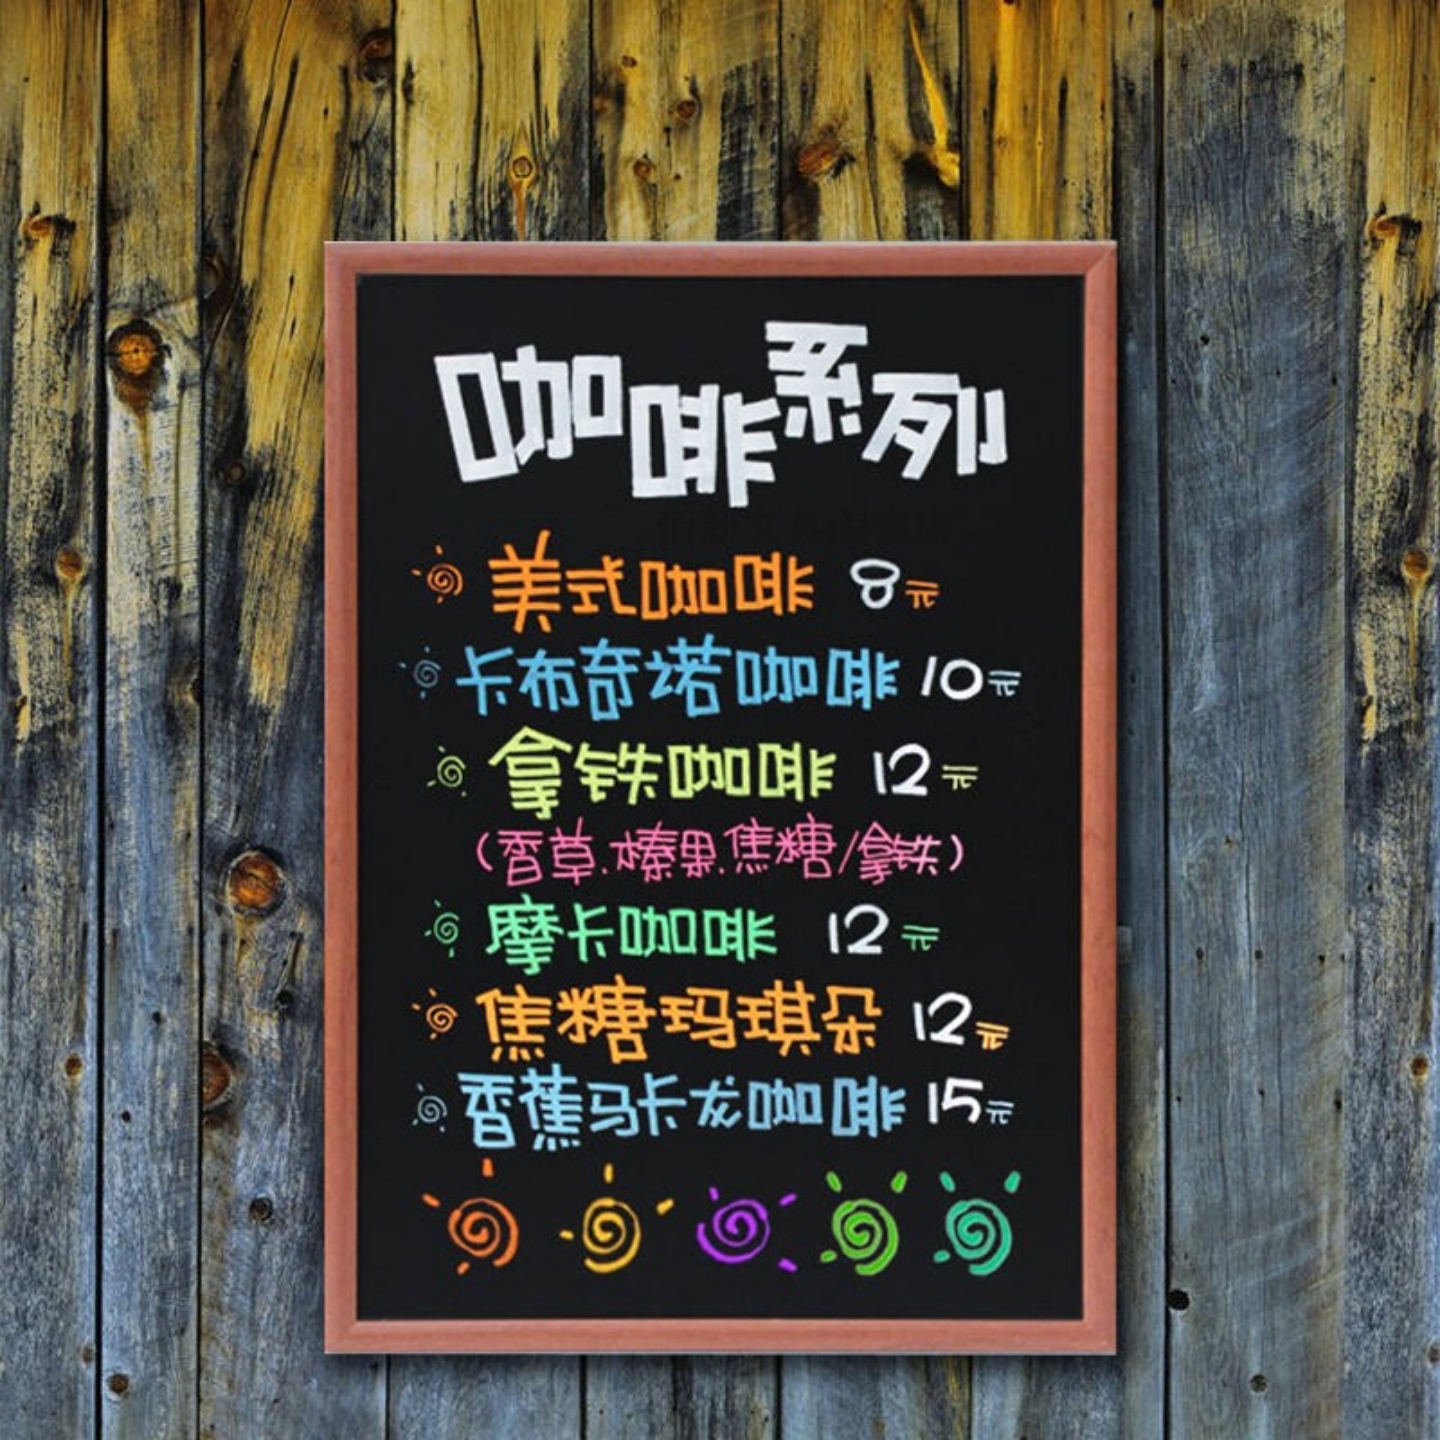 咖啡系列
美式咖啡 8元
卡布奇诺咖啡 10元
拿铁咖啡 12元
(香草.榛果.焦糖/拿铁)
摩卡咖啡 12元
焦糖玛琪朵 12元
香蕉马卡龙咖啡 15元